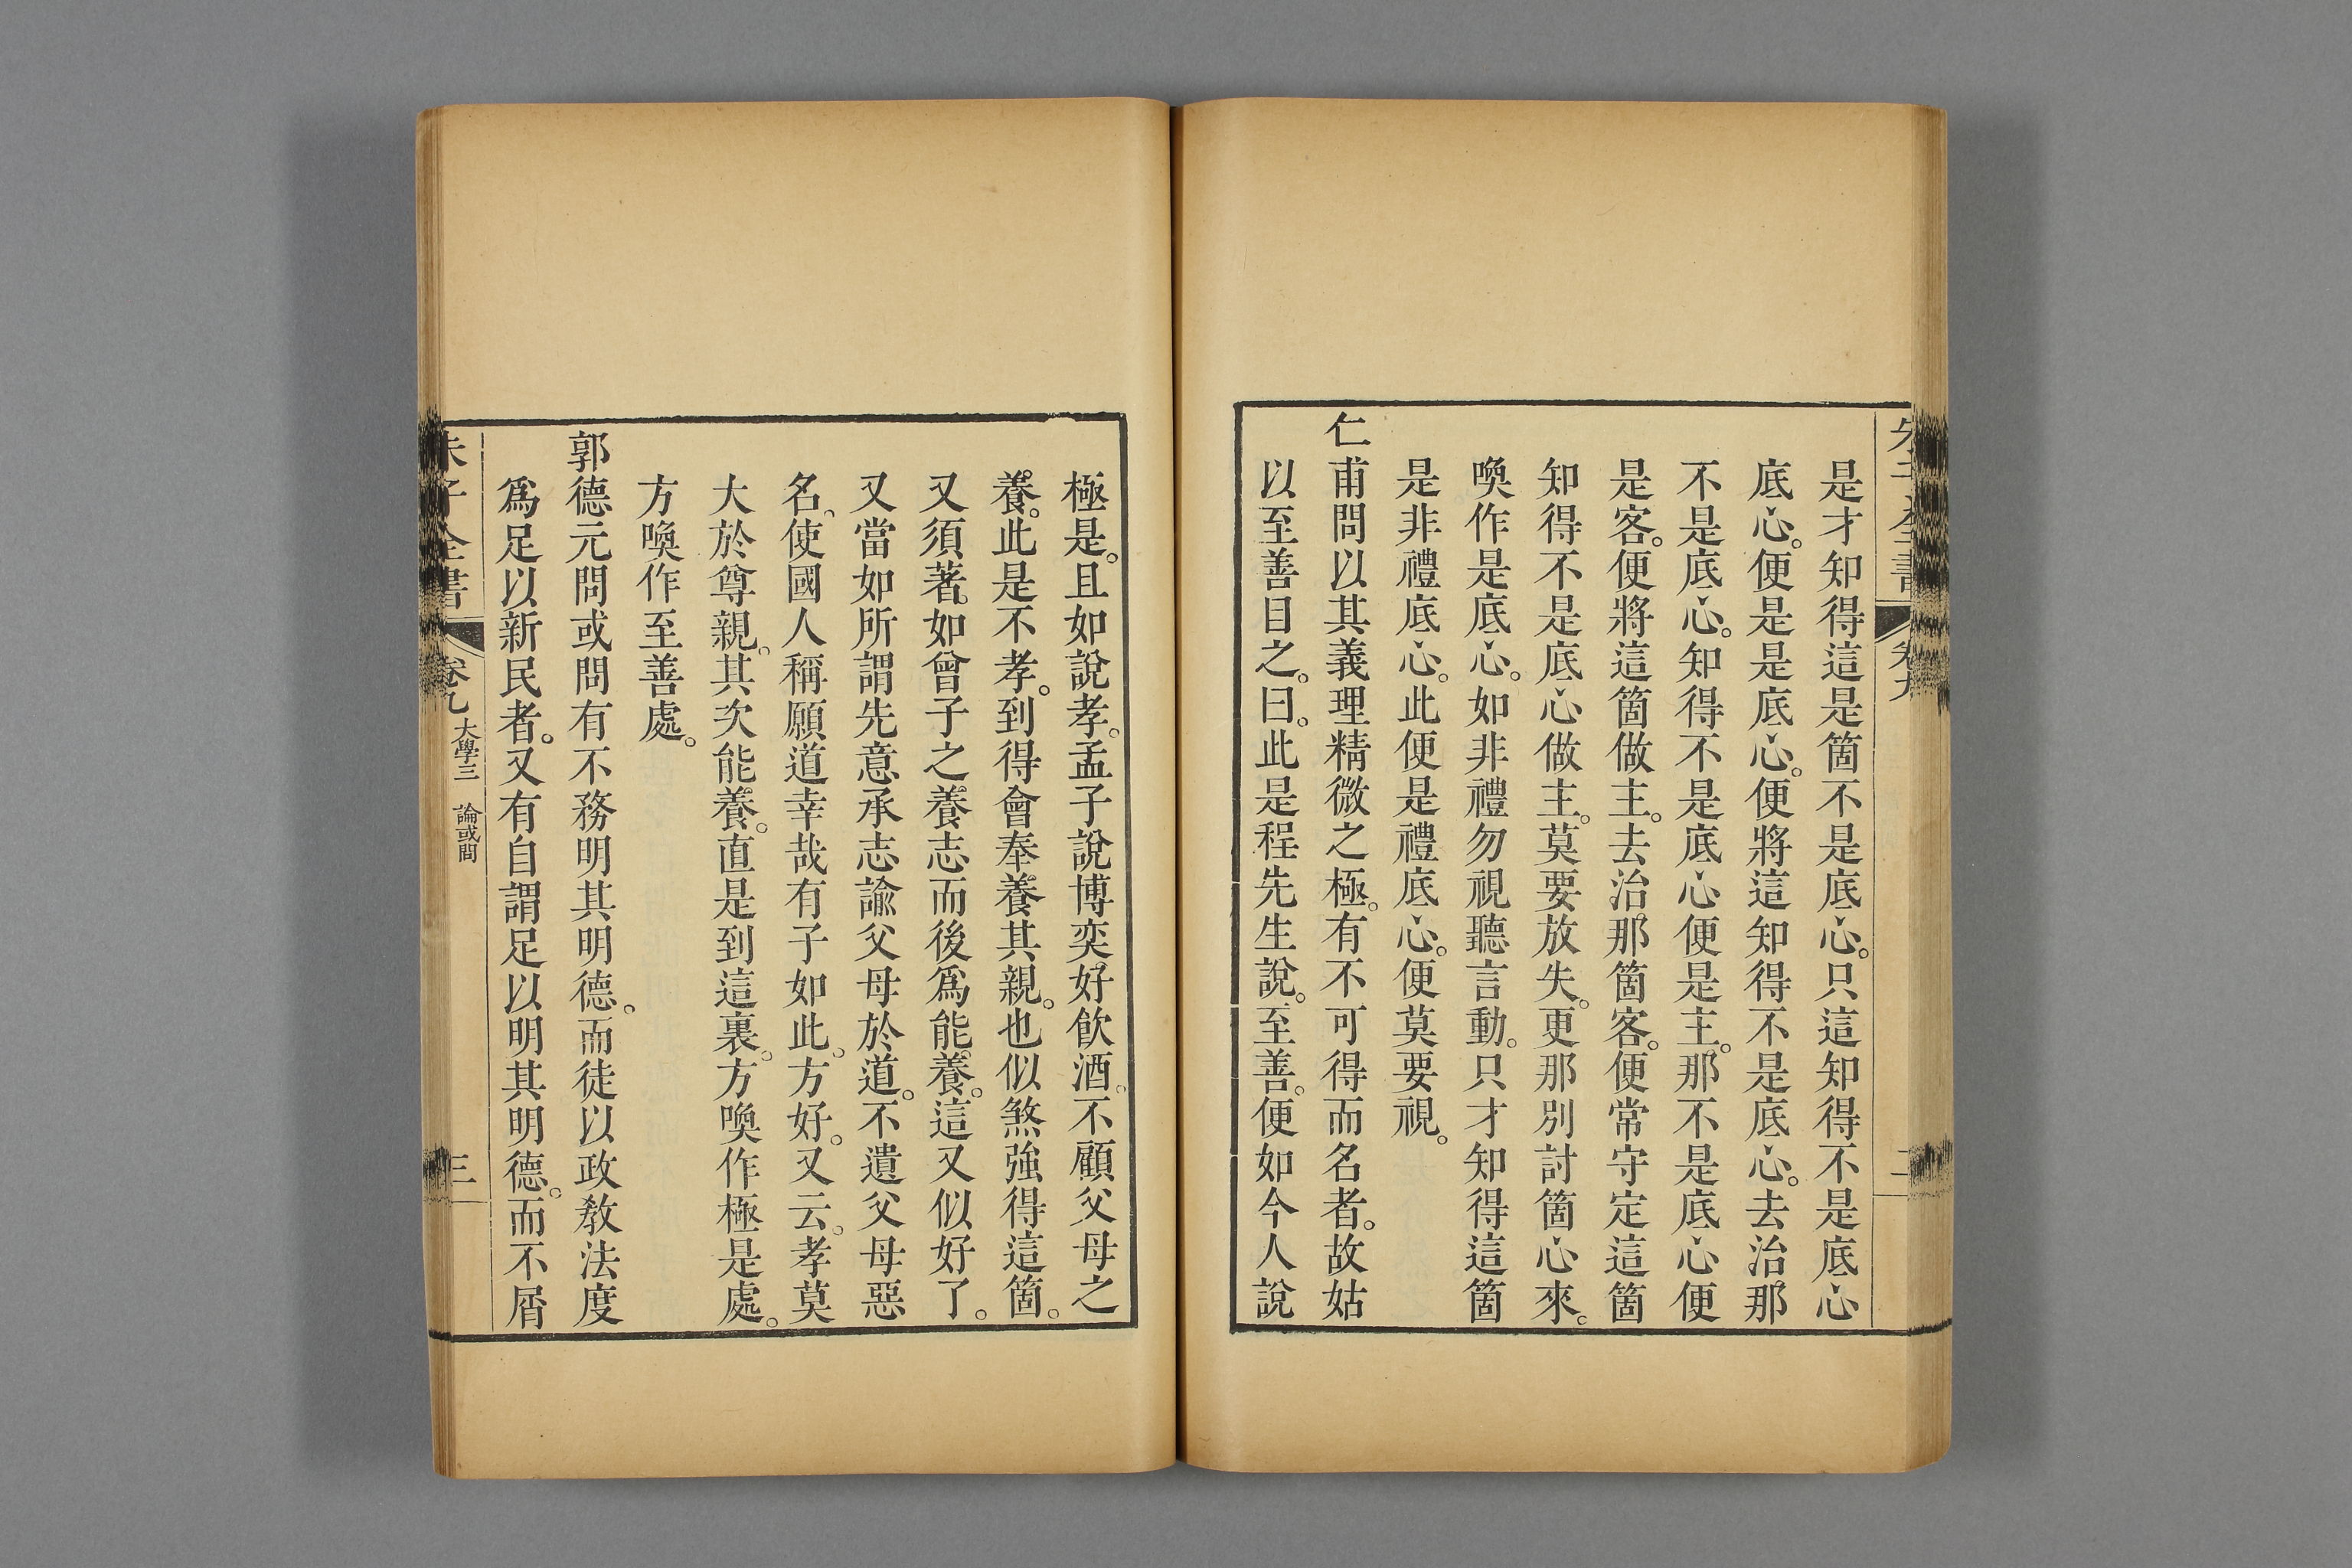 朱子全書 卷九 二
是才知得這是箇不是底心。只這知得不是底心
底心。便是是底心。便將這知得不是底心。去治那
不是底心。知得不是底心便是主。那不是底心便
是客。便將這箇做主。去治那箇客。便常守定這箇
知得不是底心做主。莫要放失。更那別討箇心來。
喚作是底心。如非禮勿視聽言動。只才知得這箇
是非禮底心。此便是禮底心。便莫要視。
仁甫問以其義理精微之極。有不可得而名者。故姑
以至善目之。曰。此是程先生說。至善。便如今人說
極是。且如說孝。孟子說博奕好飲酒。不顧父母之
養。此是不孝。到得會奉養其親。也似煞強得這箇。
又須著。如曾子之養志而後爲能養。這又似好了。
又當如所謂先意承志諭父母於道。不遺父母惡
名。使國人稱願道幸哉有子如此。方好。又云。孝莫
大於尊親。其次能養。直是到這裏。方喚作極是處。
方喚作至善處。
郭德元問或問有不務明其明德。而徒以政敎法度
爲足以新民者。又有自謂足以明其明德。而不屑
朱子全書 卷九 大學三 論或問 三